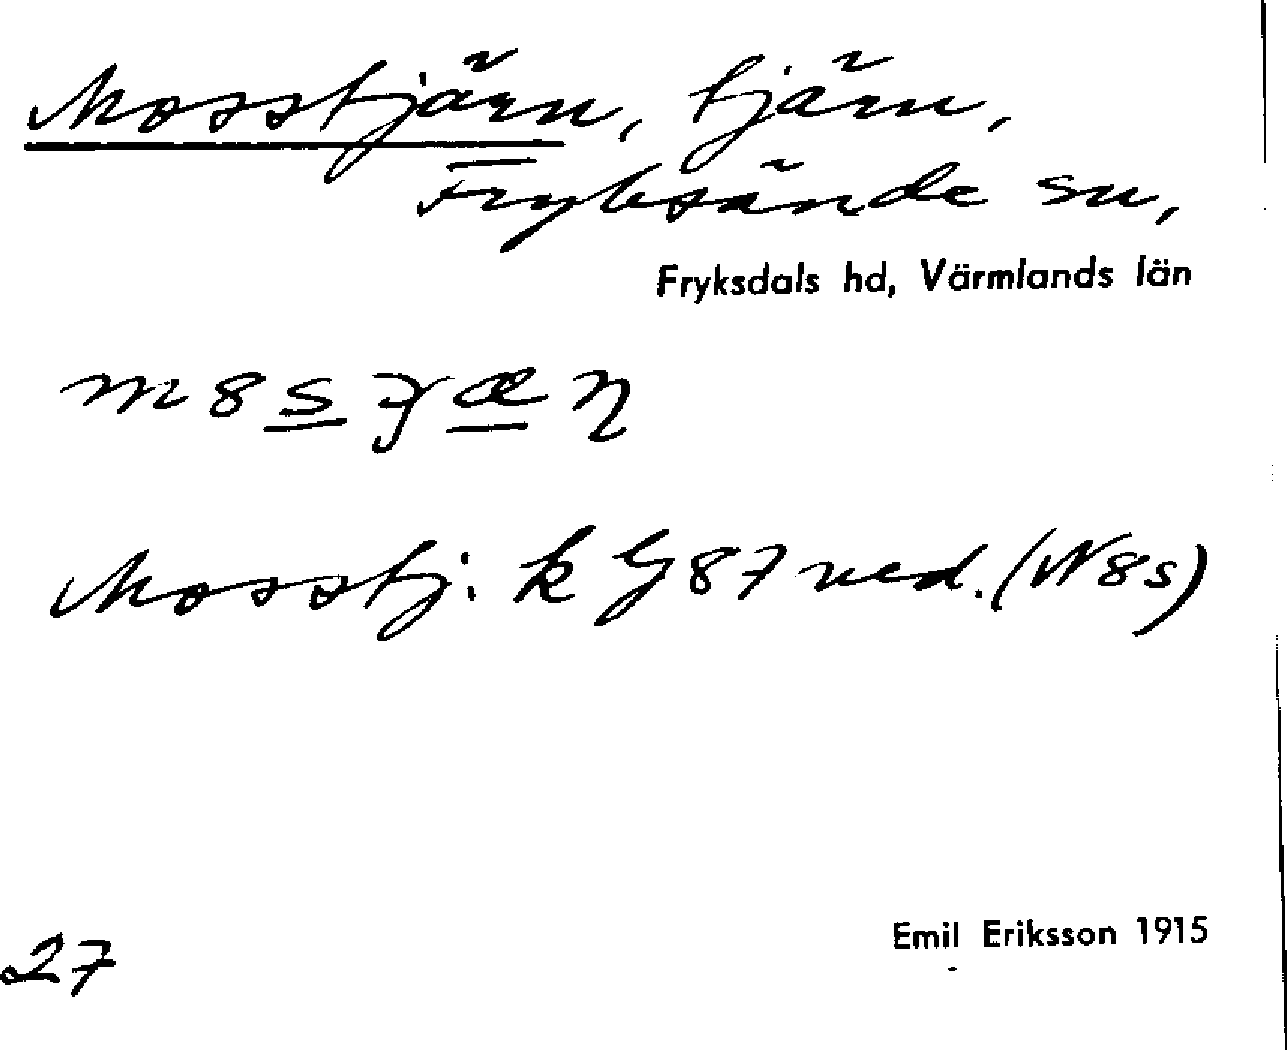 Mosstjärn, tjärn,
Fryksände sn,
Fryksdals hd, Värmlands län
Mosstj. k G 87 ned. (N8s)
27
Emil Eriksson 1915